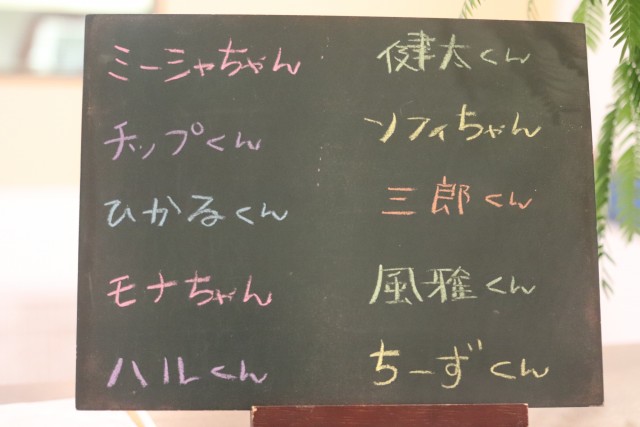 ミーシャちゃん
チップくん
ひかるくん
モナちゃん
ハルくん
健太くん
ソフィちゃん
三郎くん
風雅くん
ちーずくん